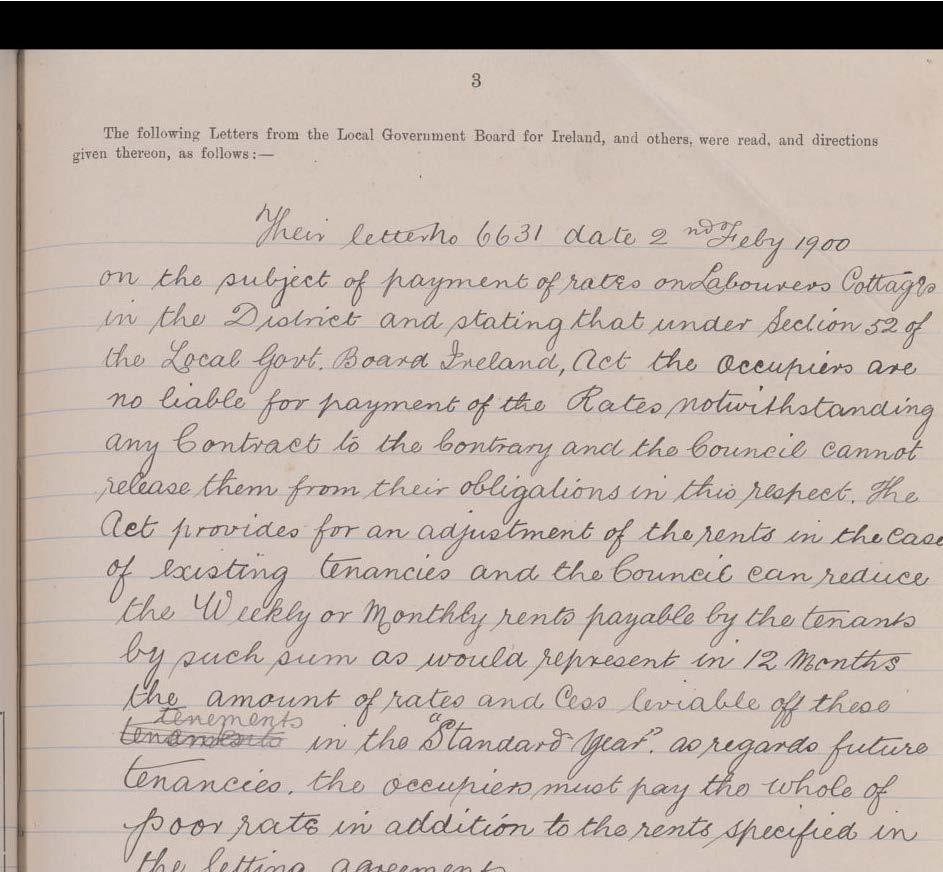 3
The following Letters from the Local Government Board for Ireland, and others, were read, and directions
given thereon, as follows:—
Their letter No 6631 date 2nd Feby 1900
on the subject of payment of rates on Labourers Cottages
in the District and stating that under Section 52 of
the Local Govt. Board Ireland, Act the Occupiers are
no liable for payment of the Rates notwithstanding
any Contract to the Contrary and the Council cannot
release them from their obligations in this respect. The
Act provides for an adjustment of the rents in the case
of existing tenancies and the Council can reduce
the Weekly or Monthly rents payable by the tenants
by such sum as would represent in 12 Months
the amount of rates and Cess leviable off these
tenements
in the "Standard Year". as regards future
tenancies. the occupiers must pay the whole of
poor rate in addition to the rents specified in
the letting agreement